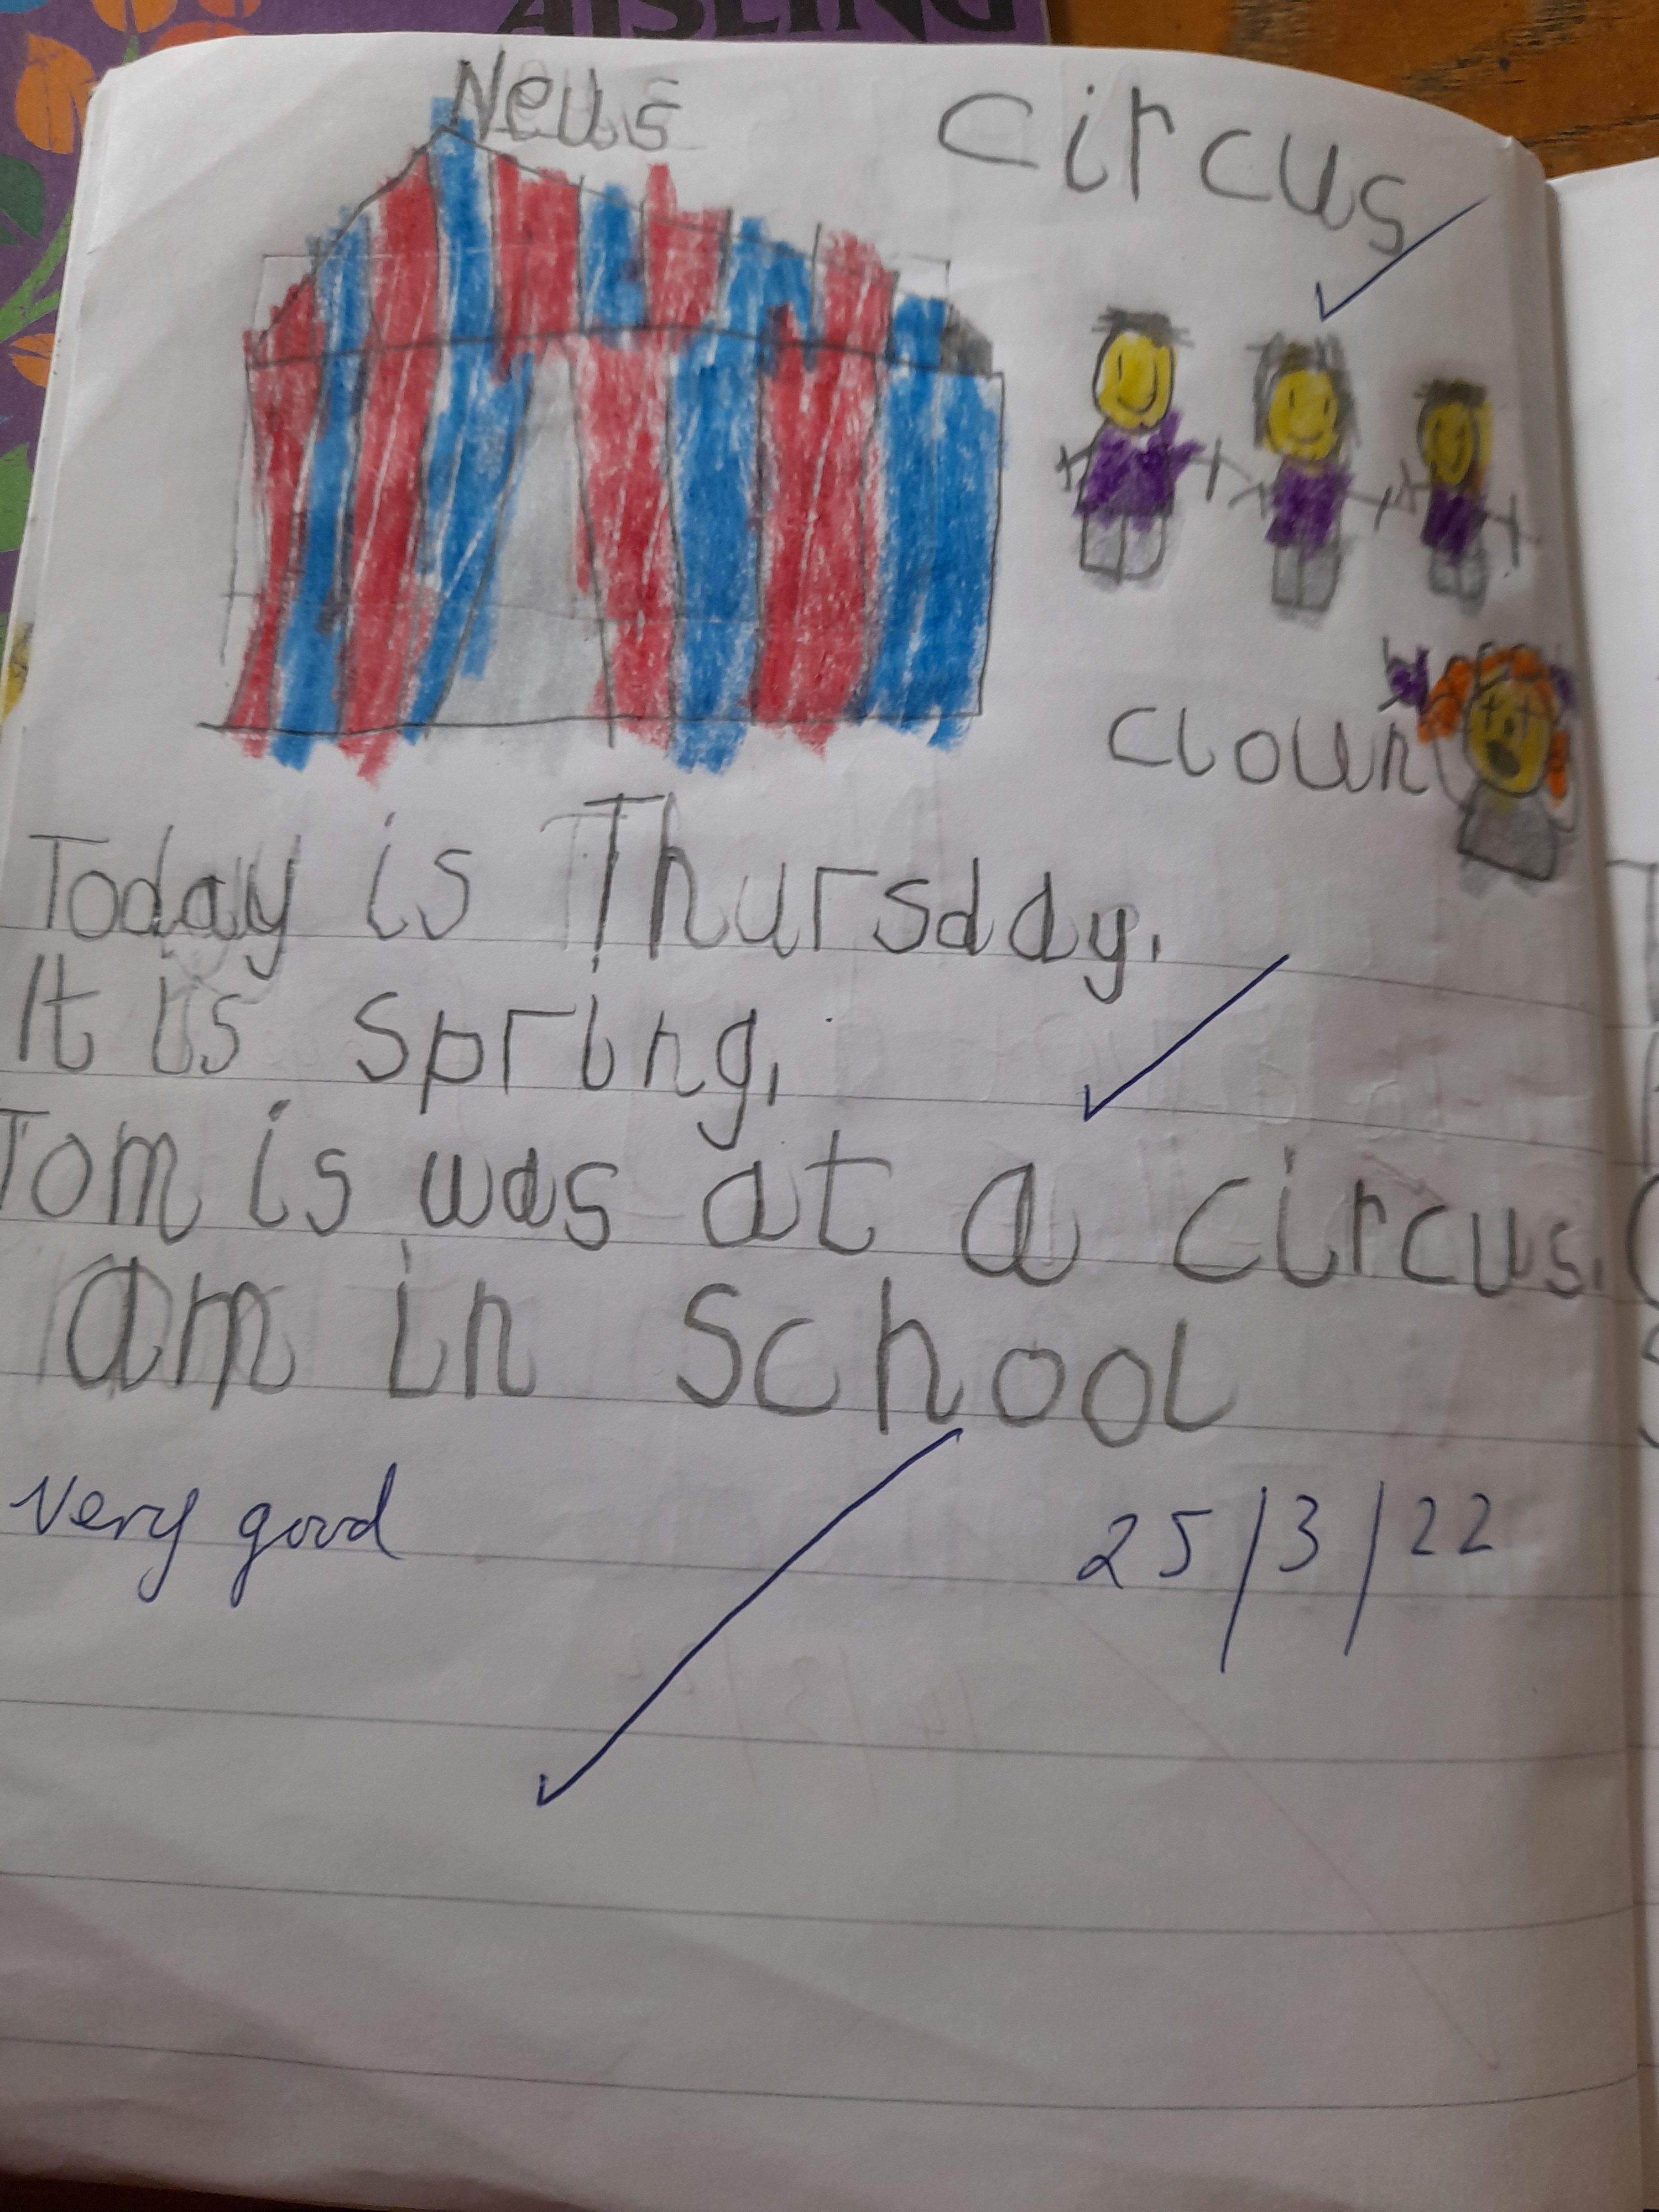 AISLING
News
circus
clown
Today is Thursday.
It is spring.
Tom is was at a circus.
am in school
very good
25/3/22